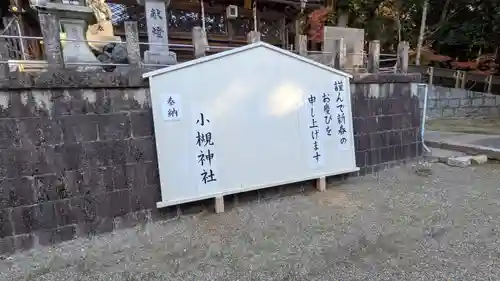 献燈
謹んで新春の
お慶びを
申し上げます
奉納
小槻神社